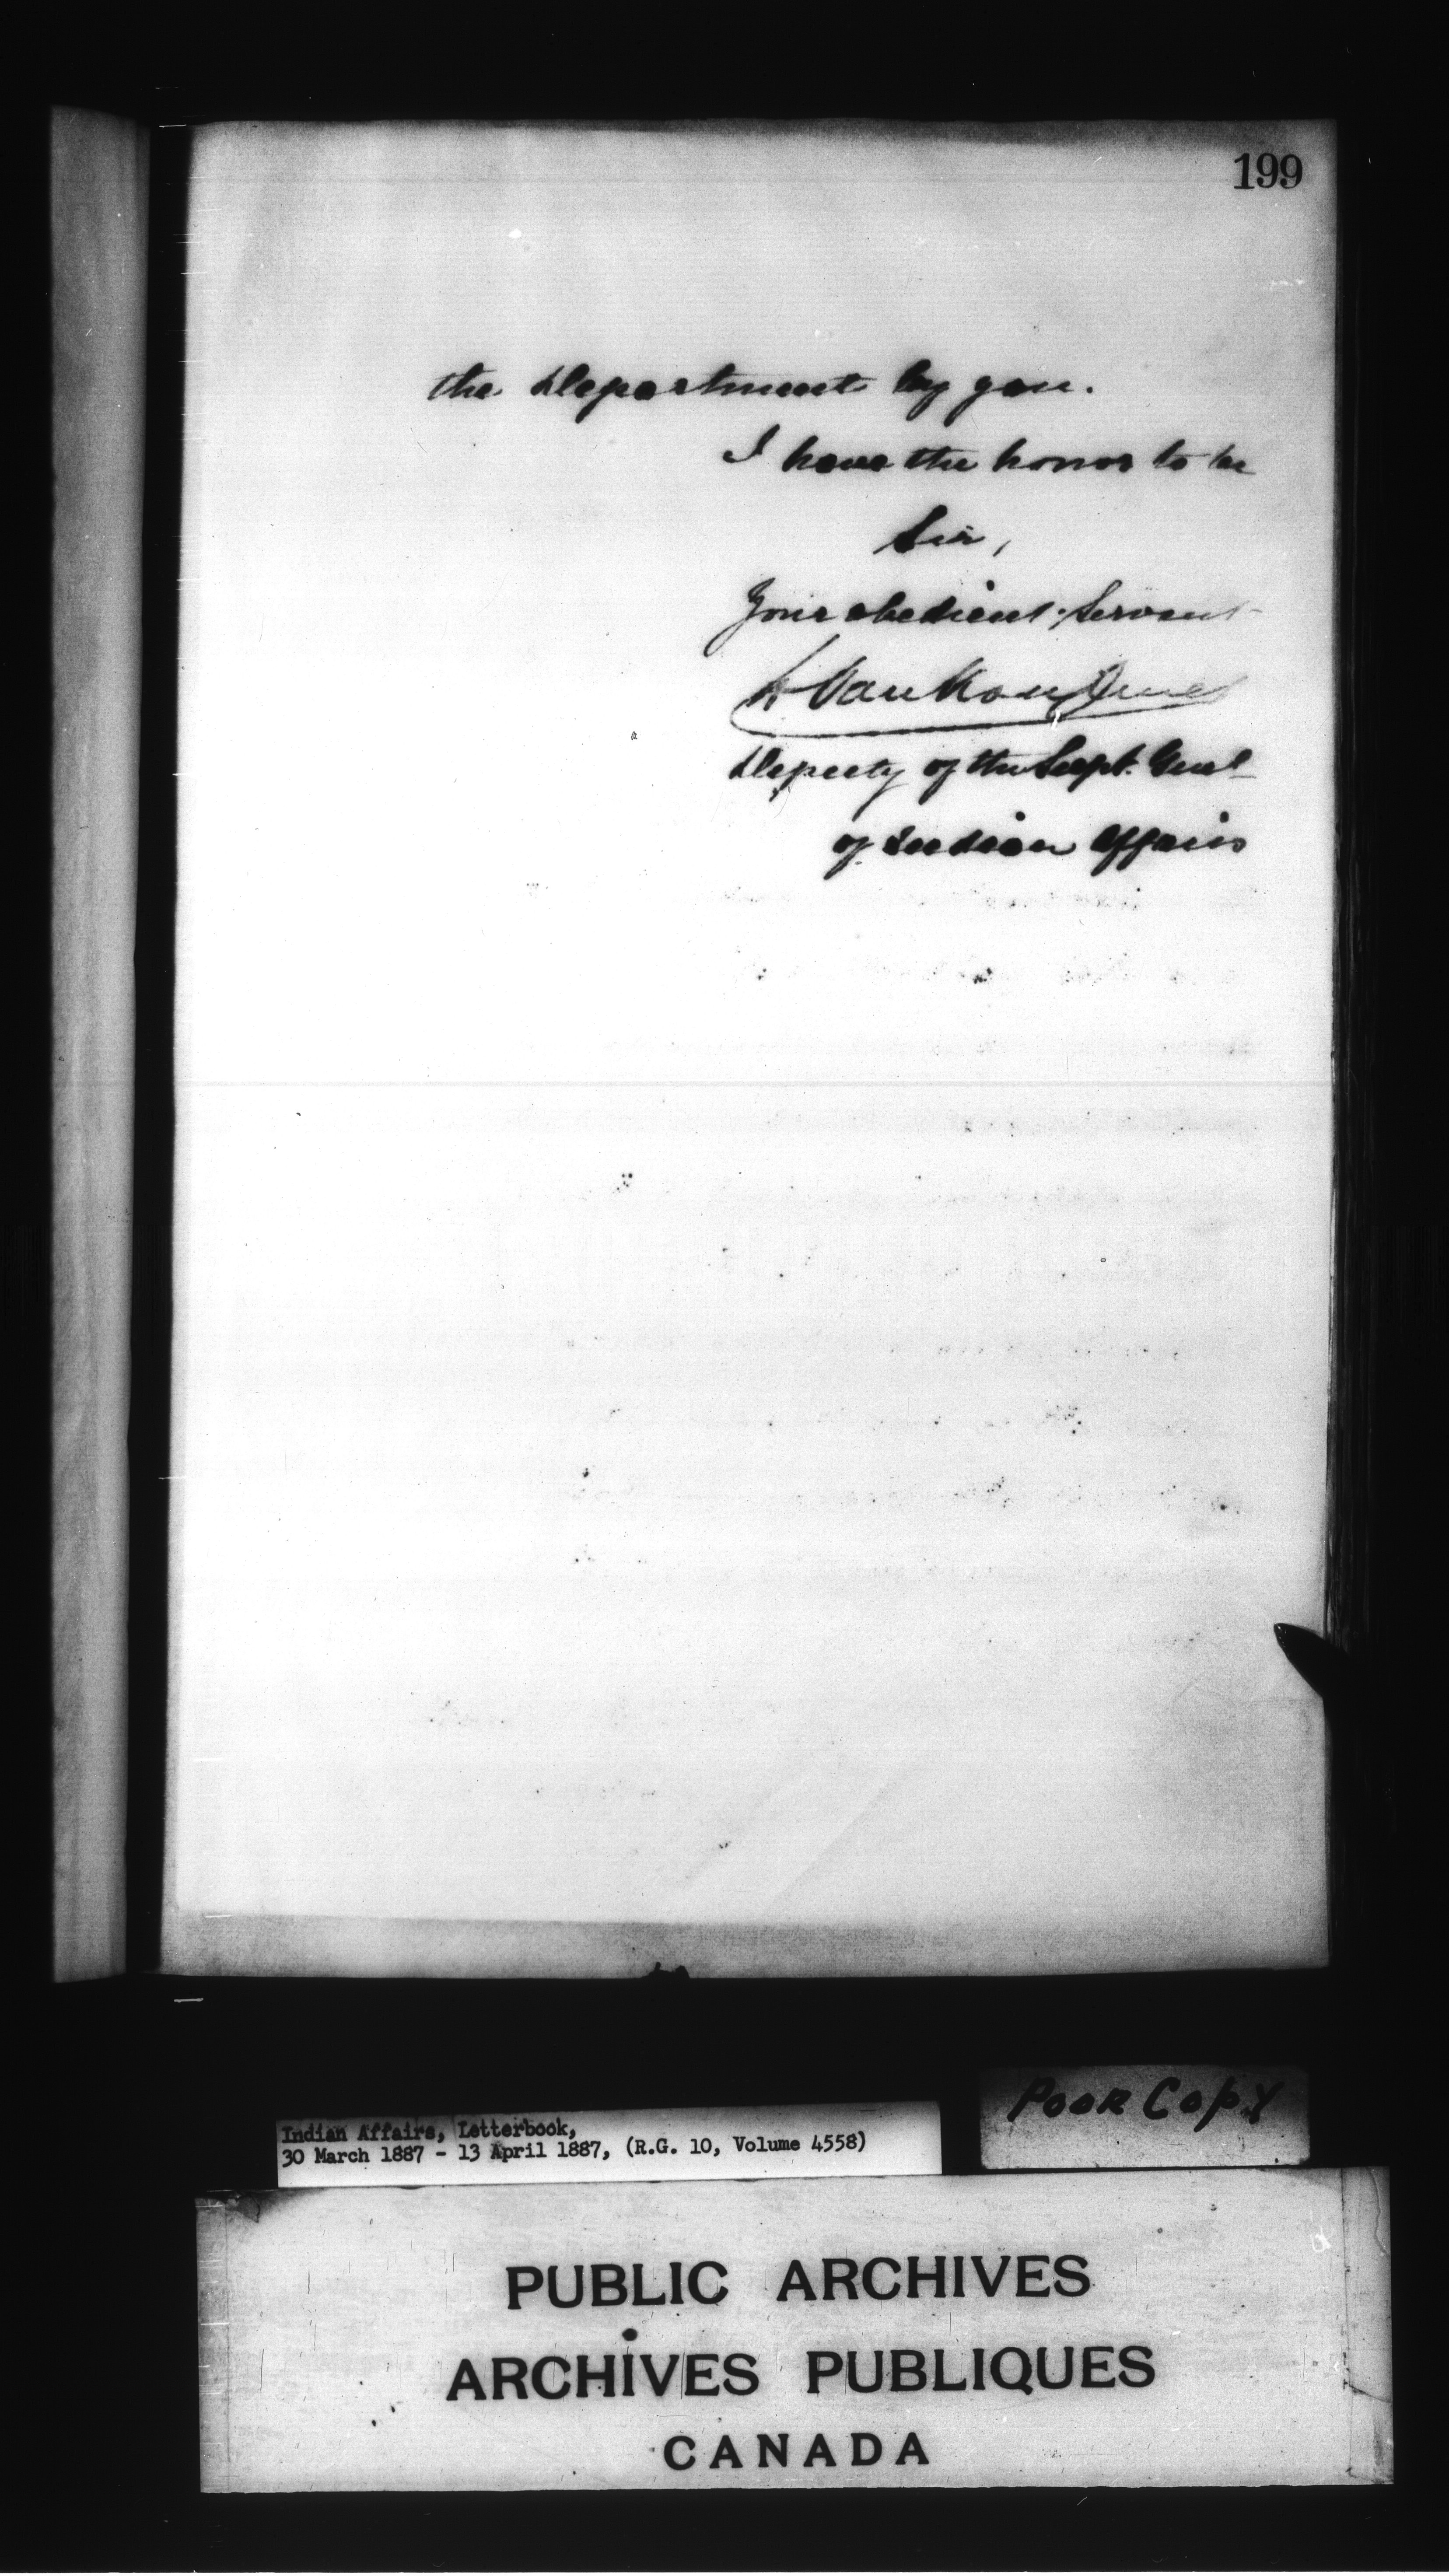 199
the Department by you.
I have the honor to be
Sir,
Your obedient Servant
L. VanKoughnet
Deputy of the Supt. Genl
of Indian Affairs
Poor Copy
Indian Affairs, Letterbook,
30 March 1887 - 13 April 1887, (R.G. 10, Volume 4558)
PUBLIC ARCHIVES
ARCHIVES PUBLIQUES
CANADA